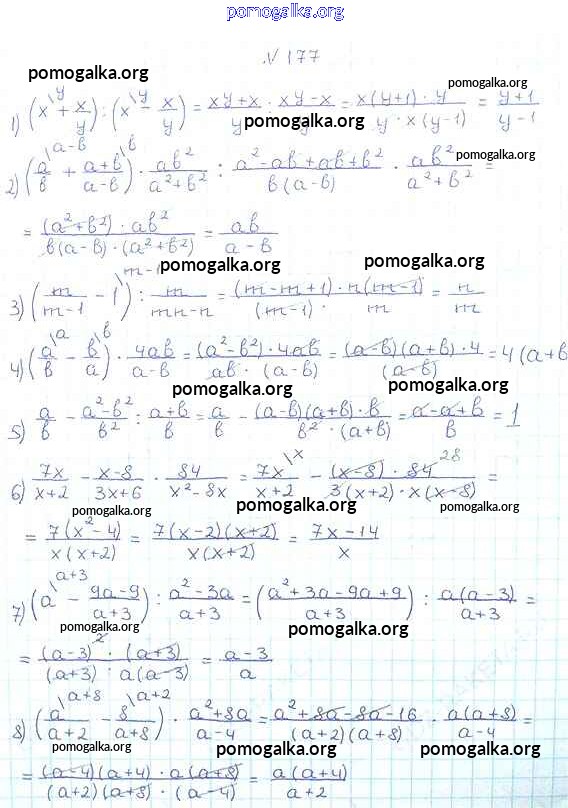 pomogalka.org
N 177
pomogalka.org pomogalka.org
1) (x\y + x/y) : (x\y - x/y) = (xy+x)/y : (xy-x)/y = (x(y+1)·y)/(y·x(y-1)) = (y+1)/(y-1)
pomogalka.org
2) (a/b\a-b + (a+b)/(a-b)\b) · ab²/(a²+b²) : (a²-ab+ab+b²)/(b(a-b)) · ab²/(a²+b²) =
pomogalka.org
= ((a²+b²)·ab²)/(b(a-b)·(a²+b²)) = ab/(a-b)
pomogalka.org pomogalka.org
3) (m/(m-1) - 1\m-1) : m/(mn-n) = ((m-m+1)·n(m-1))/((m-1)·m) = n/m
pomogalka.org pomogalka.org
4) (a/b\a - b/a\b) · 4ab/(a-b) = ((a²-b²)·4ab)/(ab·(a-b)) = ((a-b)(a+b)·4)/(a-b) = 4(a+b
pomogalka.org pomogalka.org
5) a/b - (a²-b²)/b² : (a+b)/b = a/b - ((a-b)(a+b)·b)/(b²·(a+b)) = (a-a+b)/b = 1
pomogalka.org pomogalka.org
6) 7x/(x+2) - (x-8)/(3x+6) · 84/(x²-8x) = 7x/(x+2)\x - ((x-8)·84 28)/(3(x+2)·x(x-8)) =
pomogalka.org pomogalka.org
= 7(x²-4)/(x(x+2)) = 7(x-2)(x+2)/(x(x+2)) = (7x-14)/x
7) (a\a+3 - (9a-9)/(a+3)) : (a²-3a)/(a+3) = ((a²+3a-9a+9)/(a+3)) : a(a-3)/(a+3) =
pomogalka.org pomogalka.org
= ((a-3)²·(a+3))/((a+3)·a(a-3)) = (a-3)/a
8) (a/(a+2)\a+8 - 8/(a+8)\a+2) · (a²+8a)/(a-4) = (a²+8a-8a-16)/((a+2)(a+8)) · a(a+8)/(a-4) =
pomogalka.org pomogalka.org pomogalka.org
= ((a-4)(a+4)·a(a+8))/((a+2)(a+8)·(a-4)) = a(a+4)/(a+2)